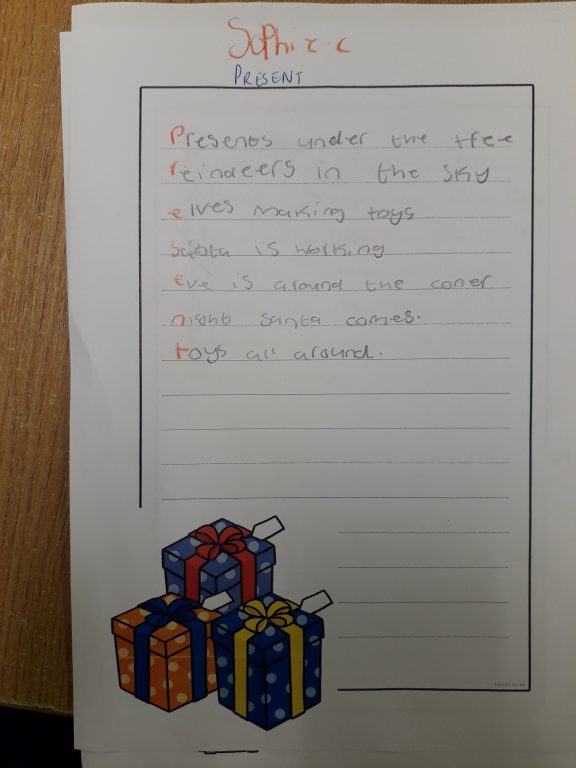 Sophie c
PRESENT
Presenos under the tree
reindeers in the sky
elves making toys
santa is working
eve is around the coner
night santa comes.
toys all around.